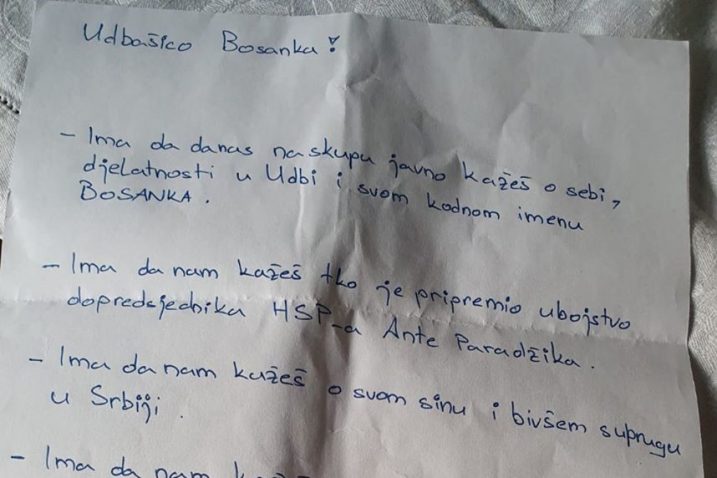 Udbašico Bosanka!
- Ima da danas na skupu javno kažeš o sebi,
djelatnosti u Udbi i svom kodnom imenu
BOSANKA.
- Ima da nam kažeš tko je pripremio ubojstvo
dopredsjednika HSP-a Ante Paradžika.
- Ima da nam kažeš o svom sinu i bivšem suprugu
u Srbiji.
- Ima da nam